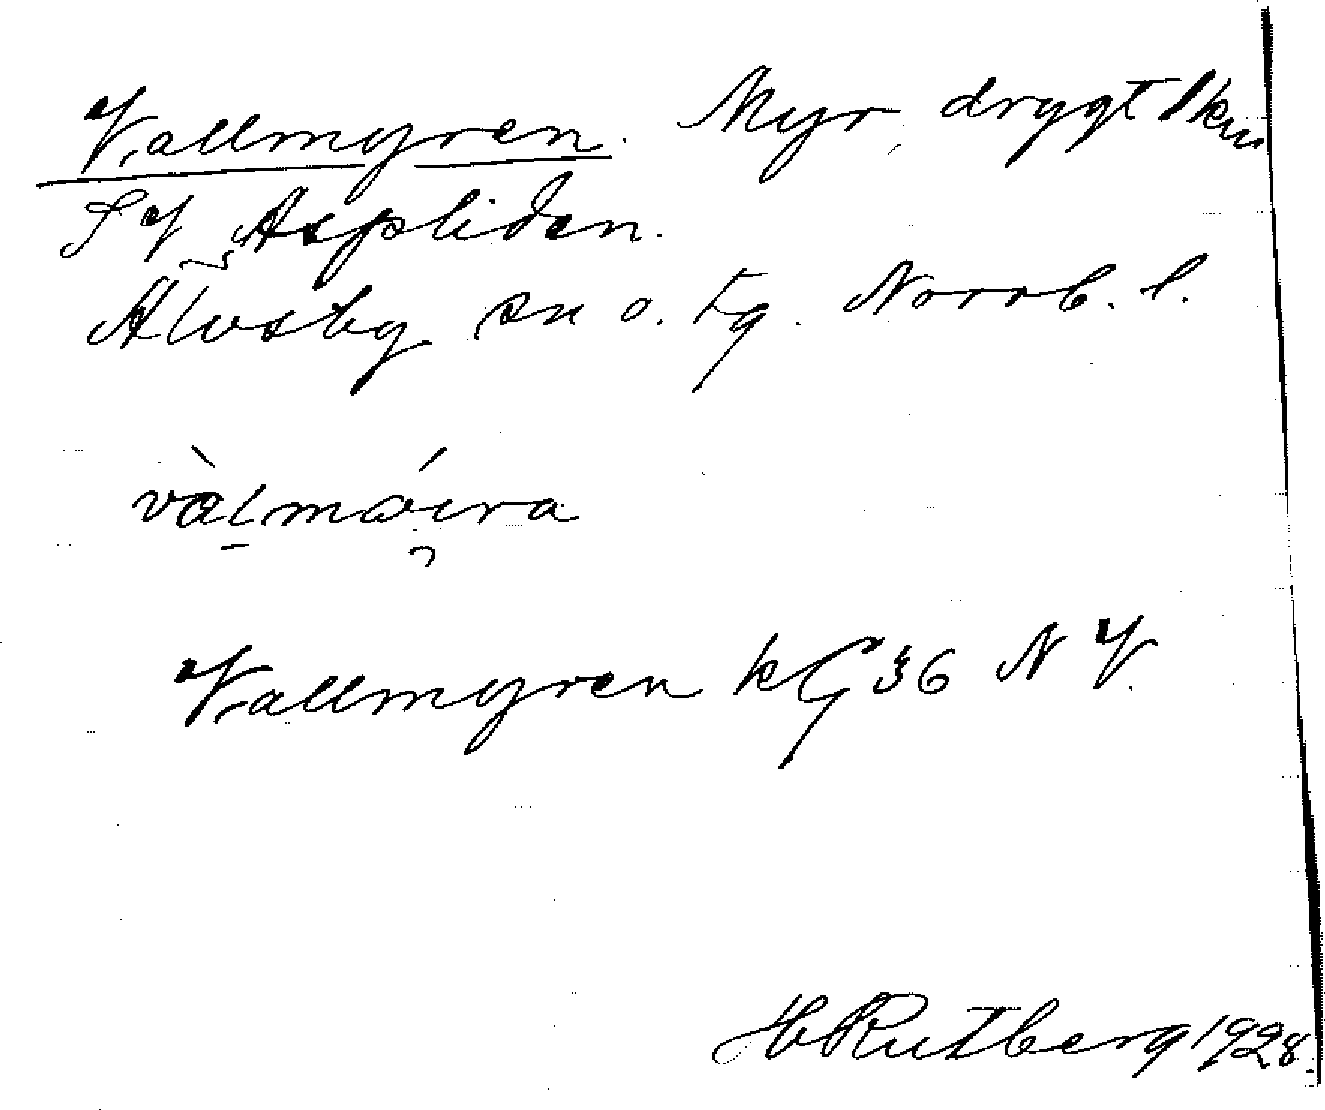 Vallmyren. Myr, drygt 1 km
SV Aspliden.
Älvsby sn o. tg. Norrb. l.
vàl̠mǻira
Vallmyren kG 36 NV.
H Rutberg 1928.